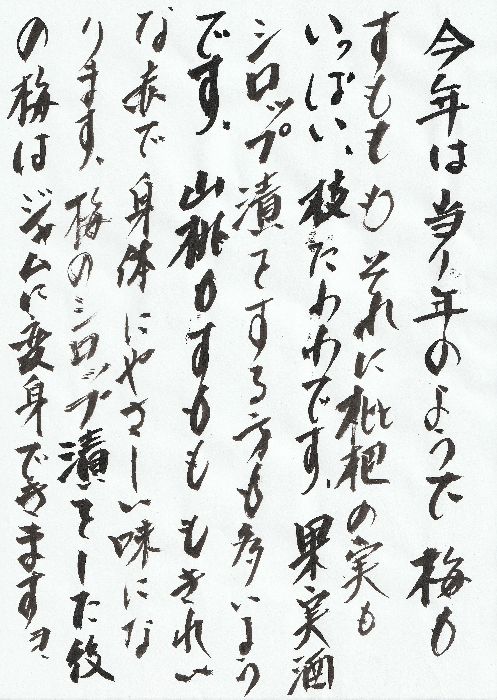 今年は当り年のようで 梅も
すももも それに枇杷の実も
いっぱい、枝たわわです、果実酒
シロップ漬をする方も多いよう
です、山桃もすもももきれい
な赤で身体にやさしい味にな
ります、梅のシロップ漬をした後
の梅はジャムに変身できますヨ、